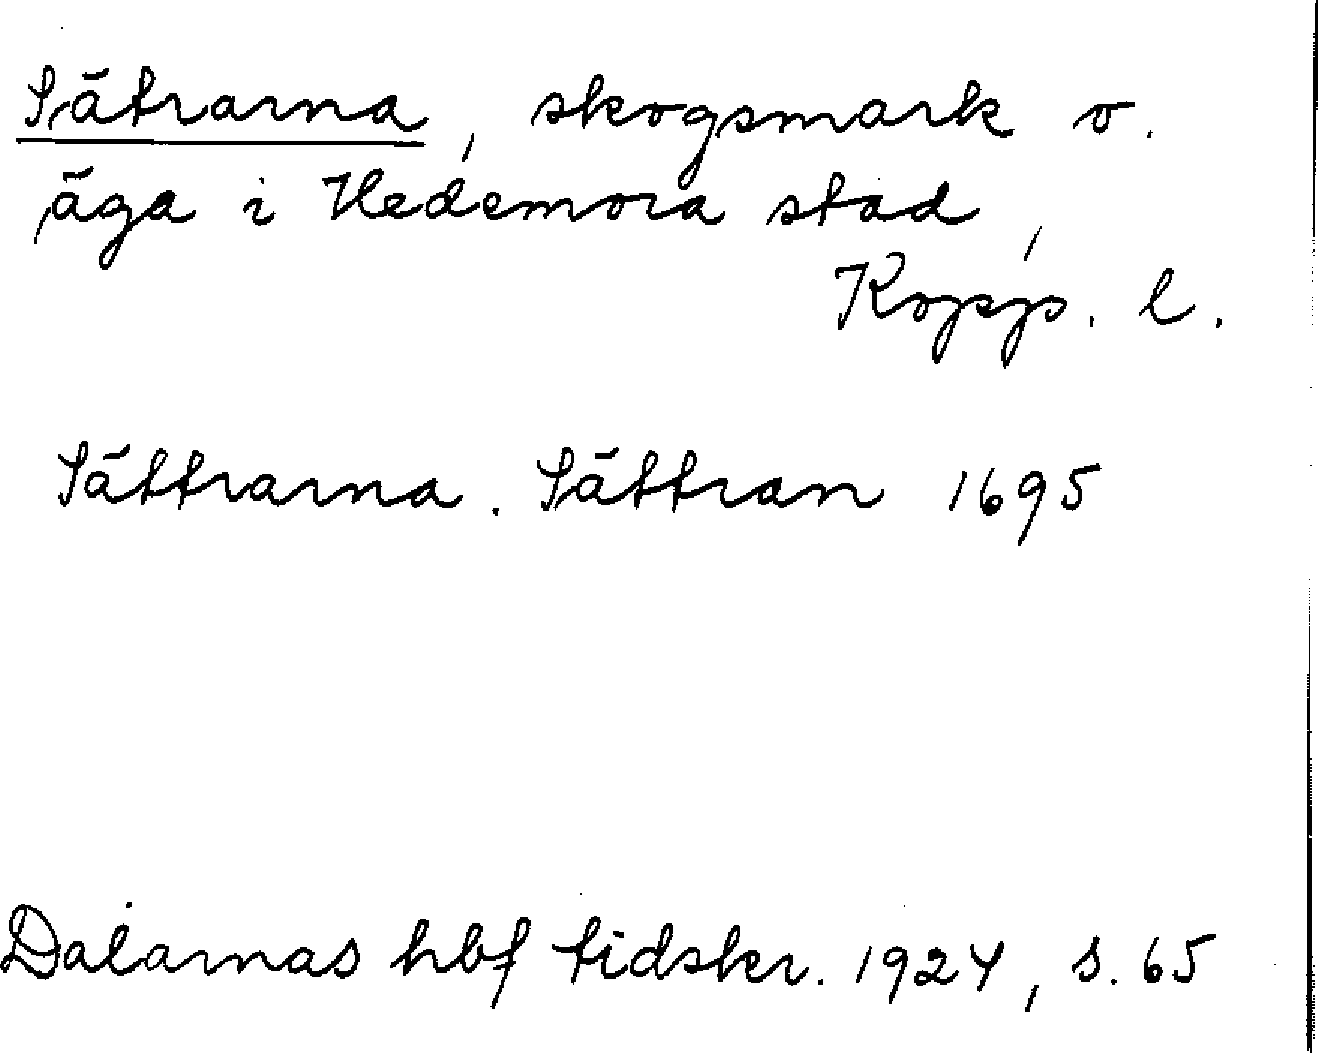 Sätrarna, skogsmark o.
äga i Hedemora stad,
Kopp. l.
Sättrarna. Sättran 1695
Dalarnas hbf tidskr. 1924, s. 65